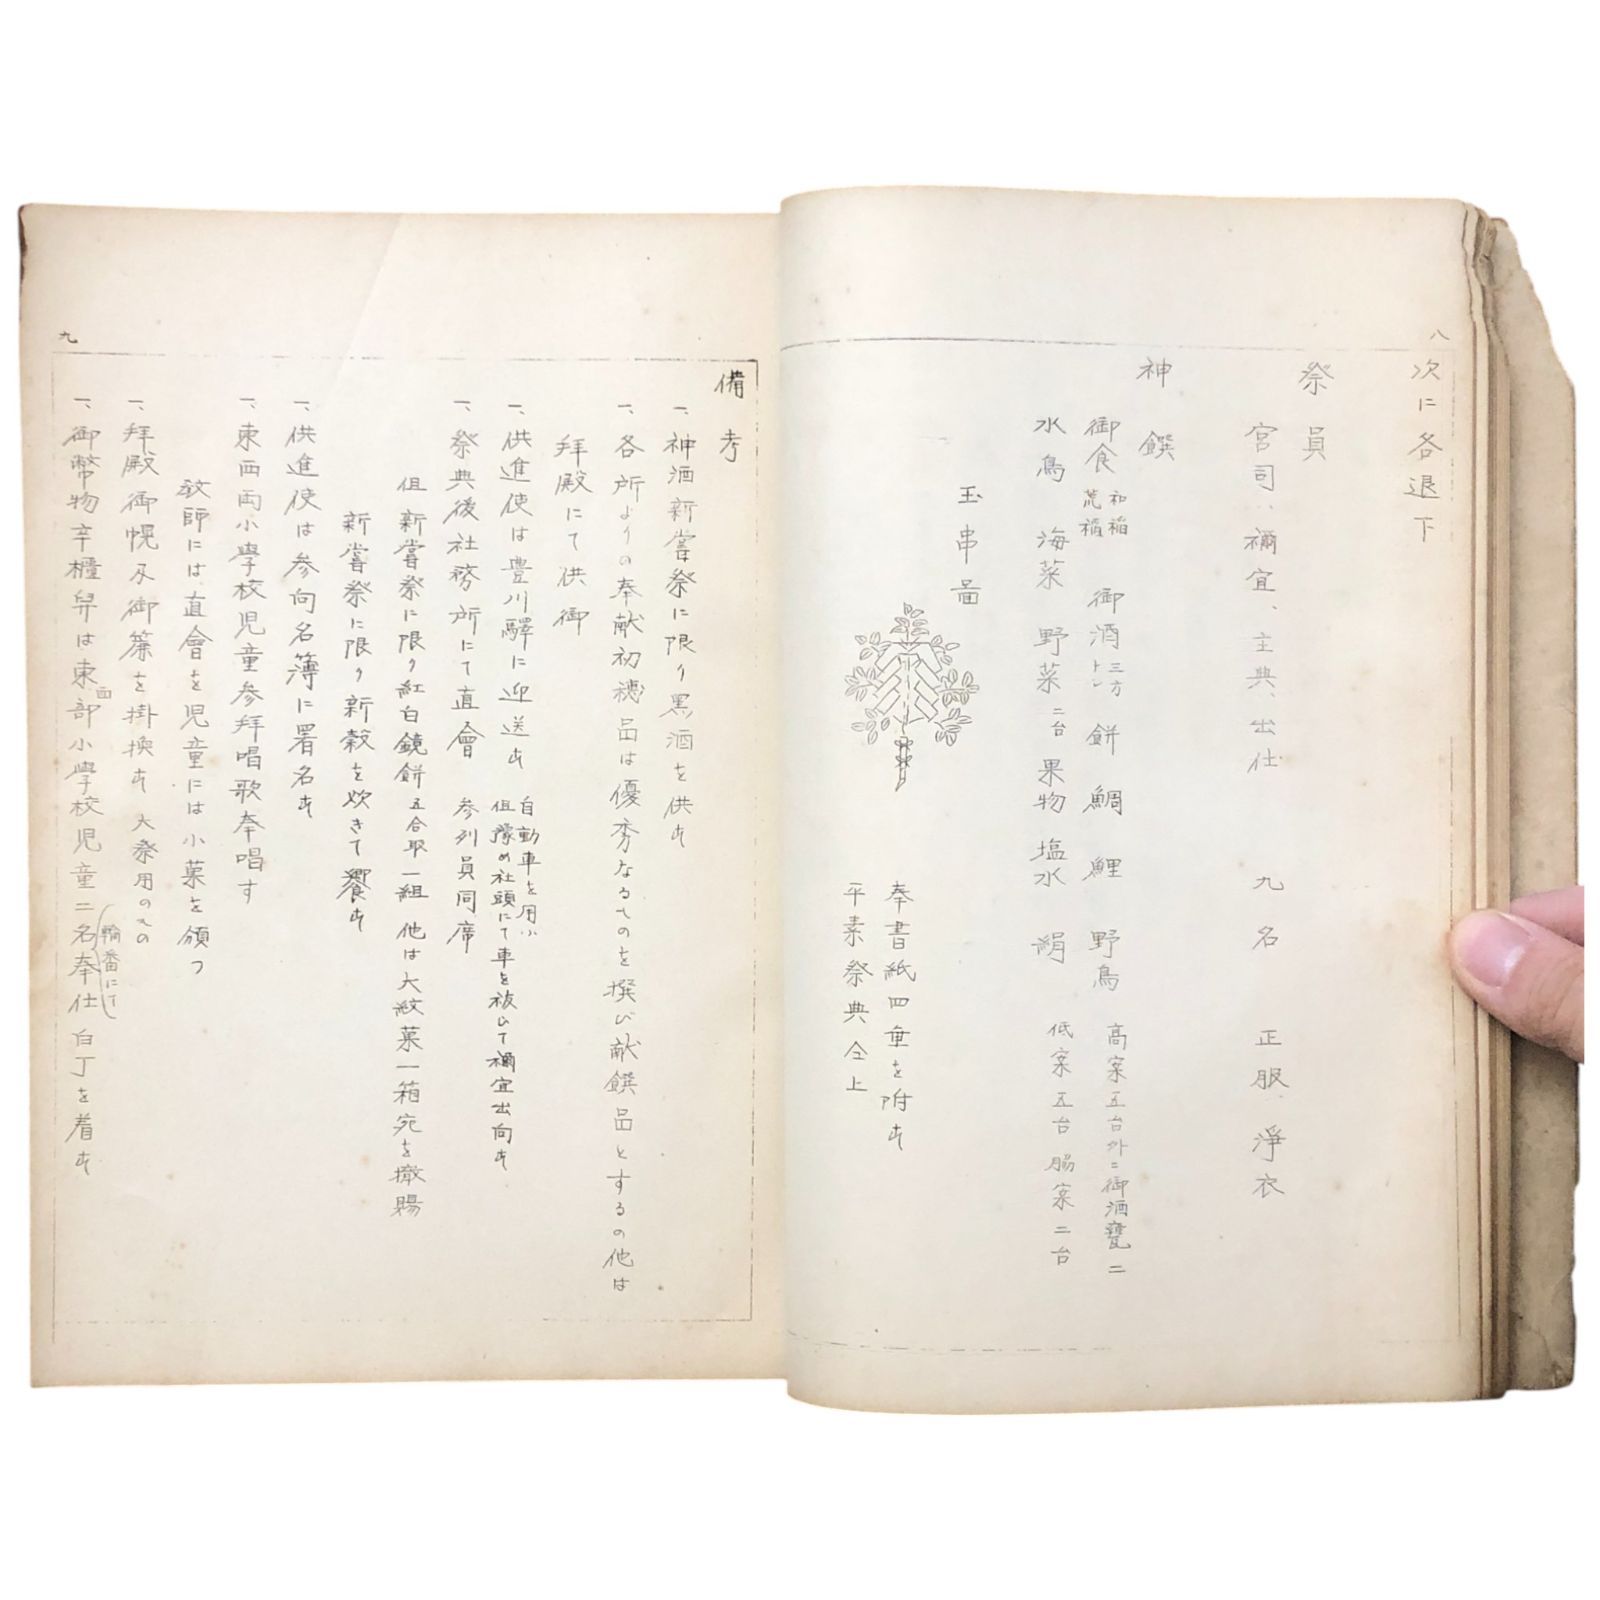 八
次に各退下
祭員
宮司、禰宜、主典、出仕　九名　正服、淨衣
神饌
御食 和稲 荒稲 御酒 三方トシ 餅 鯛 鯉 野鳥 高案五台外ニ御酒甕二
水鳥 海菜 野菜 二台 果物 塩水 絹 低案五台 脇案二台
玉串啚
奉書紙四垂を附す
平素祭典仝上
九
備考
一、神酒新嘗祭に限り黒酒を供す
一、各所よりの奉献初穂品は優秀なるものを撰び献饌品とするの他は
拝殿にて供御
一、供進使は豊川驛に迎送す 自動車を用ふ
但豫め社頭にて車を祓ひて禰宜出向す
一、祭典後社務所にて直會 参列員同席
但 新嘗祭に限り紅白鏡餅五合取一組 他は大紋菓一箱宛を撤賜
新嘗祭に限り新穀を炊きて饗す
一、供進使は参向名簿に署名す
一、東西両小學校児童参拝唱歌奉唱す
教師には直會を児童には小菓を頒つ
一、拝殿御幌及御簾を掛換す 大祭用のもの
一、御幣物辛櫃舁は東西部小學校児童二名(輪番にて)奉仕 白丁を着す